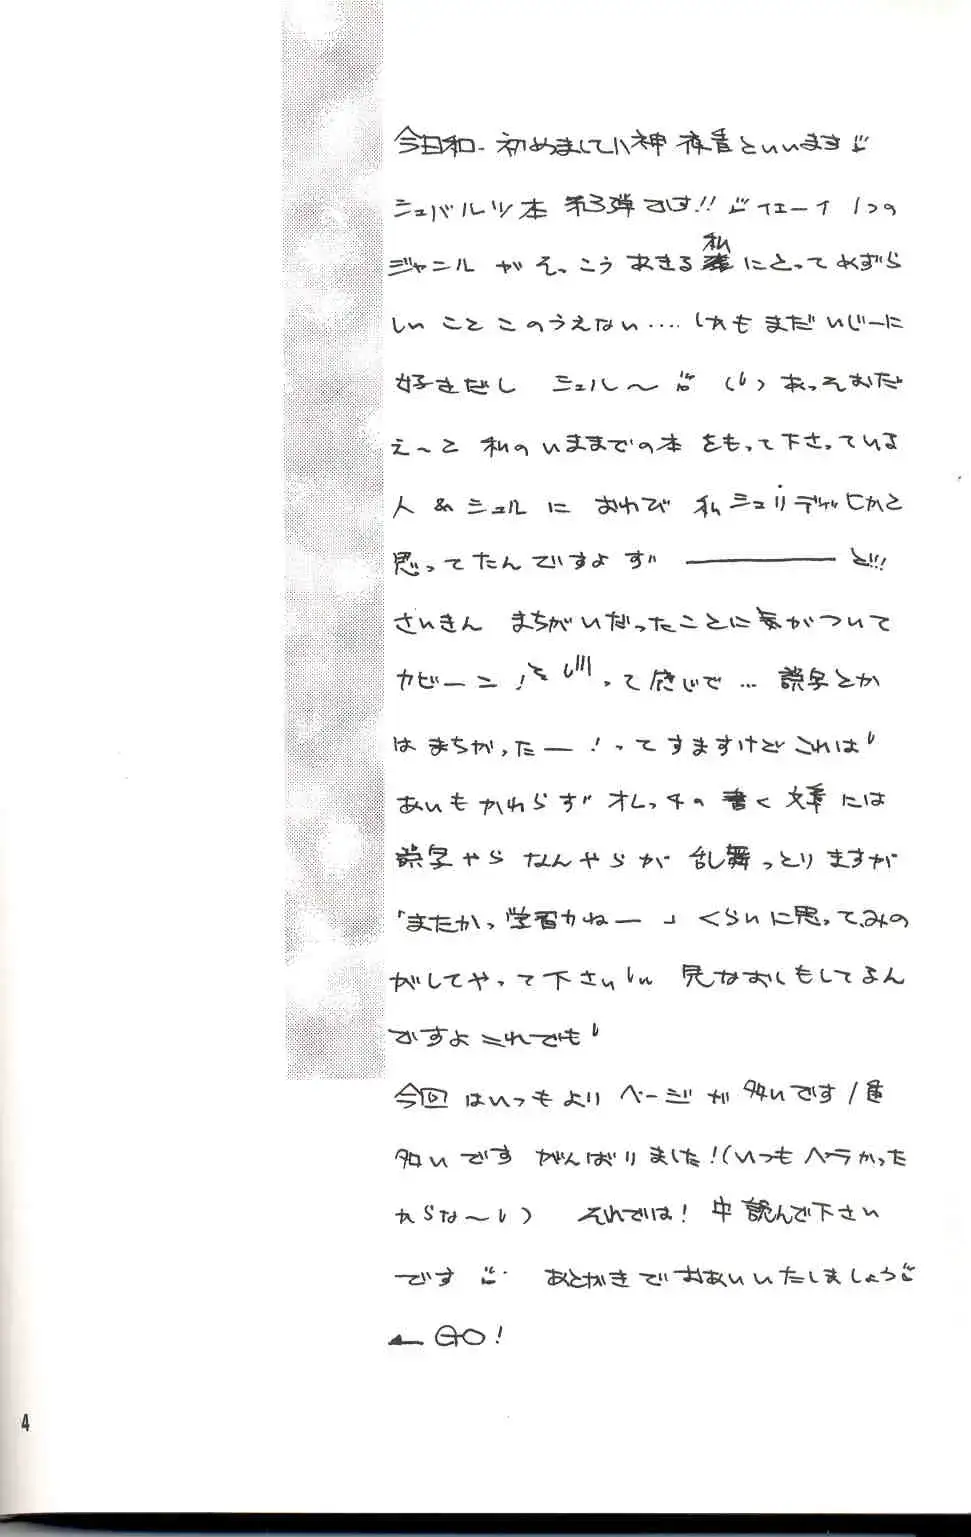 今日和- 初めまして小神 夜看といいます
シュバルツ本 第3弾です!! イエーイ 1つの
ジャンル が そっこう あきる 私 にとって めずら
しい こと このうえない‥‥ しかも まだ いじーに
好きだし シュル〜 (し) あっそおだ
え〜と 私の いままでの本 をもって下さっている
人 & シュル に おわび 私 シュリディッヒかと
思ってたんですよ ず゛────ど!!!
さいきん まちがいだったことに気がついて
カビーン! って感じで … 誤字とか
は まちがったー!ってすますけど これは
あいもかわらず オレッチの書く文章には
誤字やら なんやらが 乱舞っとりますが
「またかっ 学習力ねー」くらいに思って、みの
がしてやって下さい 見なおしもしてるん
ですよ これでも
今回はいつもより ページが 多いです 1番
多いです がんばりました!(いつも ペラかった
からな〜) それでは! 中 読んで下さい
です あとがきでおあいいたしましょう
← GO!
4